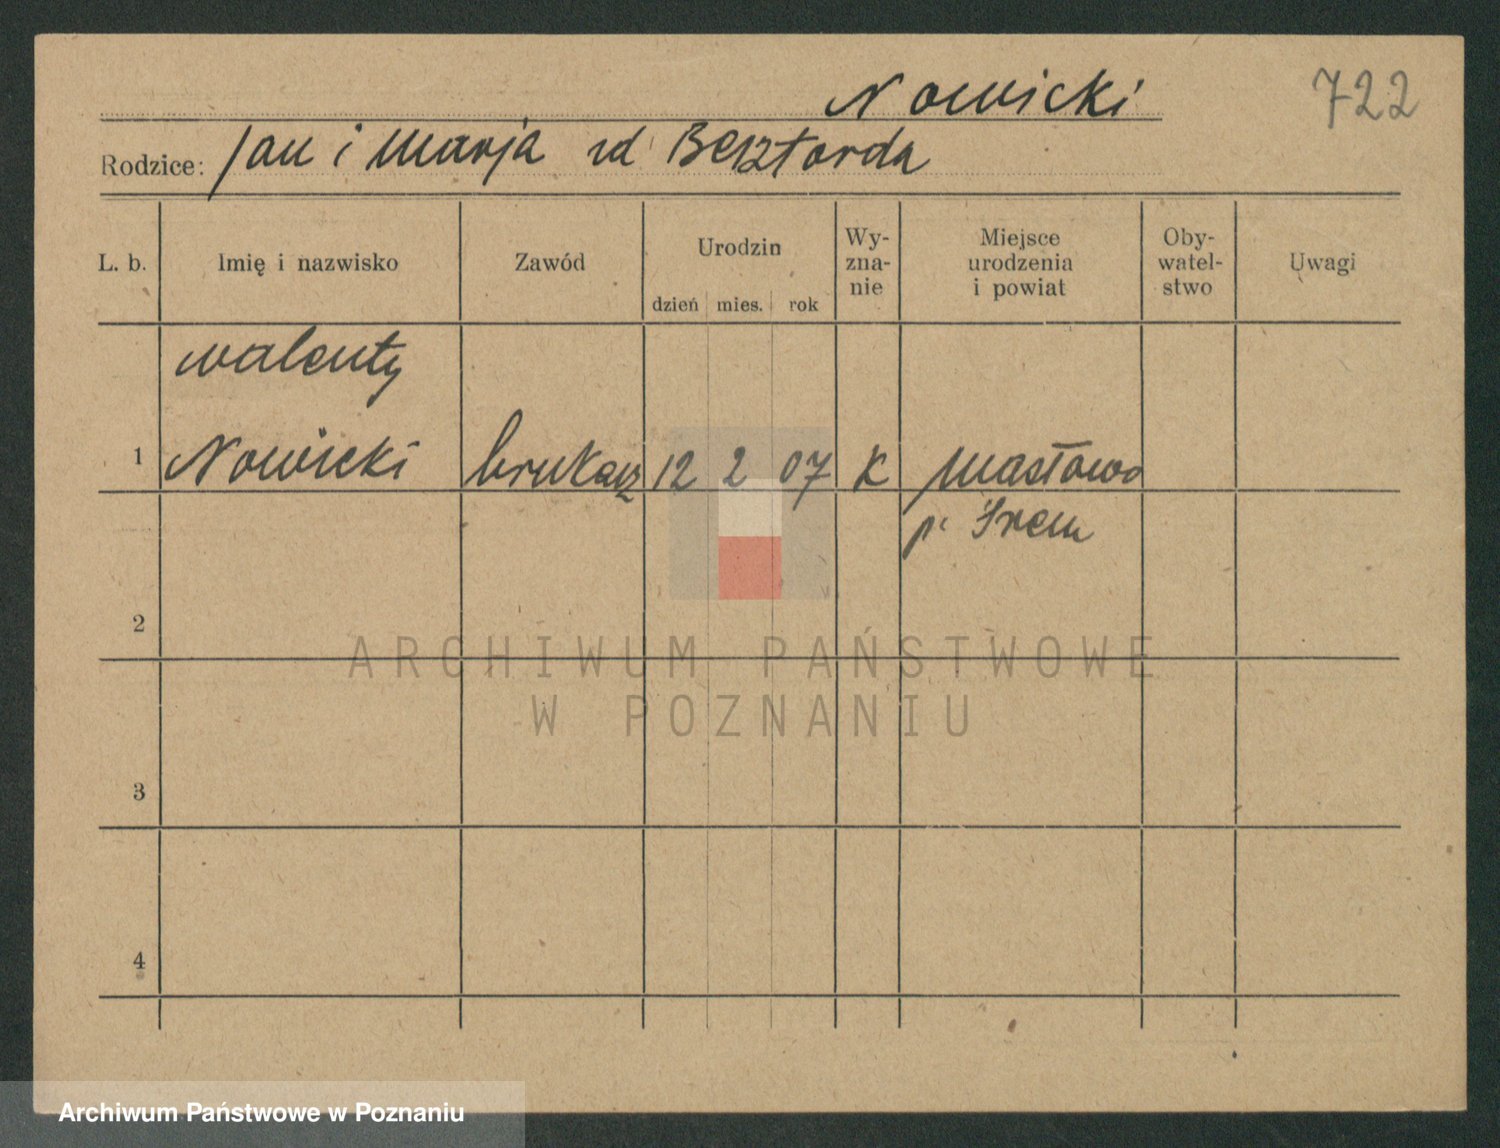 Nowicki
722
Rodzice: Jan i Marja zd Besztorda
L. b.
Imię i nazwisko
Zawód
Urodzin
dzień mies. rok
Wy-
zna-
nie
Miejsce
urodzenia
i powiat
Oby-
watel-
stwo
Uwagi
walenty
1 Nowicki brukarz 12 2 07 K Masłowo
p. Śrem
2
3
4
ARCHIWUM PAŃSTWOWE
W POZNANIU
Archiwum Państwowe w Poznaniu